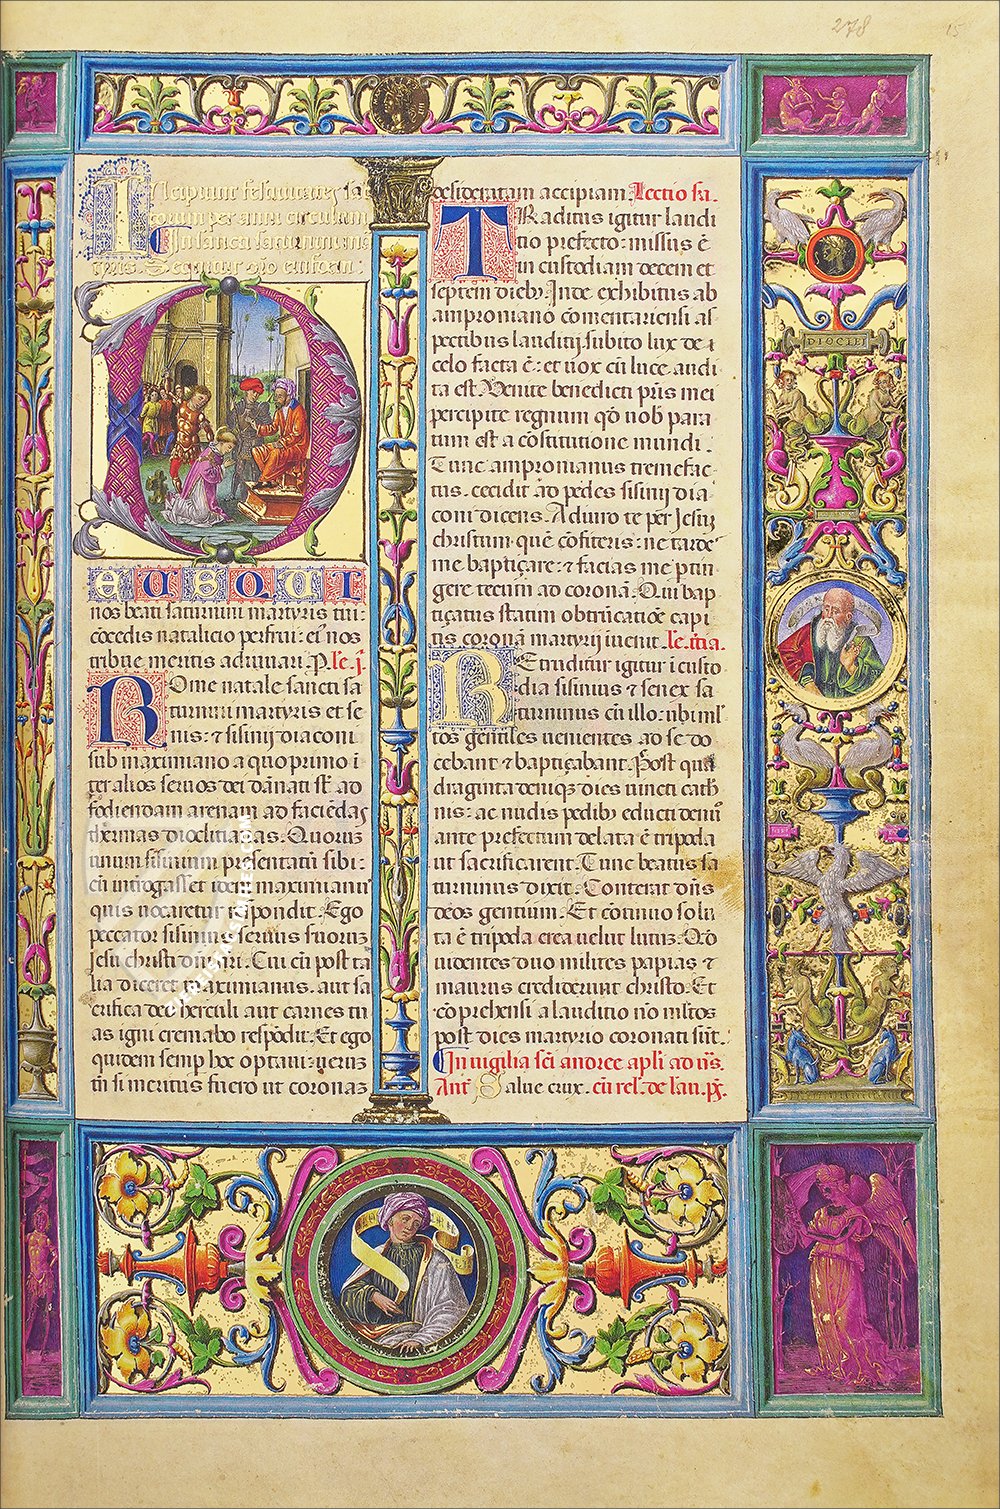 278
15
Incipiunt festiuitates sa
torum per anni circulum
In sancti saturnini mr̄
tyris. Sequitur orō eiusdem:
DEUS QUI
nos beati saturnini martyris tui:
cōcedis natalicio perfrui: ei9 nos
tribue meritis adiuuari. P. le. j.
ROme natale sancti sa
turnini martyris et se
nis: ⁊ sisinij diaconi
sub maximiano a quo primo ī
ter alios seruos dei dānati sūt ad
fodiendam arenam ad faciēdas
thermas dioclitianas. Quorum
unum sisinium presentatū sibi:
cū īntīogasset idem maximianus
quis uocaretur respondit. Ego
peccator sisinius seruus suorum
Jesu christi dn̄i Cui cū post ta
lia diceret maximianus. aut sa
crifica deo herculi aut carnes tu
as igni cremabo respōdit. Et ego
quidem semp hoc optaui: uerum
tn̄ si meritus fuero ut coronam
desideratam accipiam. Lectio sa.
TRaditus igitur laudi
tio prefecto: missus ē
in custodiam decem et
septem dieb9. Inde exhibitus ab
amproniano comentariensi as
pectibus lauditij subito lux de
celo facta ē: et uox cū luce audi
ta est. Venite benedicti pr̄is mei
percipite regnum qō uob para
tum est a cōstitutione mundi.
Tunc ampronianus tremefac
tus. cecidit ad pedes sisinij dia
coni dicens. Adiuro te per Jesū
christum quē cōfiteris: ne tarde
me baptiçare: ⁊ facias me ptin
gere tecum ad coronā. Qui bap
tiçatus statim obtrūcatiōe capi
tis coronā martyrij inuenit. le. t̄tia.
REtruditur igitur ī custo
dia sisinius ⁊ senex sa
turninus cū illo: ubi ml̄
tos gentiles uenientes ad se do
cebant ⁊ baptiçabant. Post quī
diaginta deniqz dies uincti cath̄
nis: ac nudis pedibus educti denuo
ante prefectum delata ē tripoda
ut sacrificarent. Tunc beatus sa
turninus dixit. Conterat dn̄s
deos gentium. Et cōtinuo solu
ta ē tripoda erea uelut lutum. Qō
uidentes duo milites papias ⁊
maurus crediderunt christo. Et
cōprehensi a lauditio nō ml̄tos
post dies martyrio coronati sūt.
In uigilia scī andree apl̄i ad us̄.
Ant̄ Salue crux. cū rel. de lau. p̄.
DIOCLII